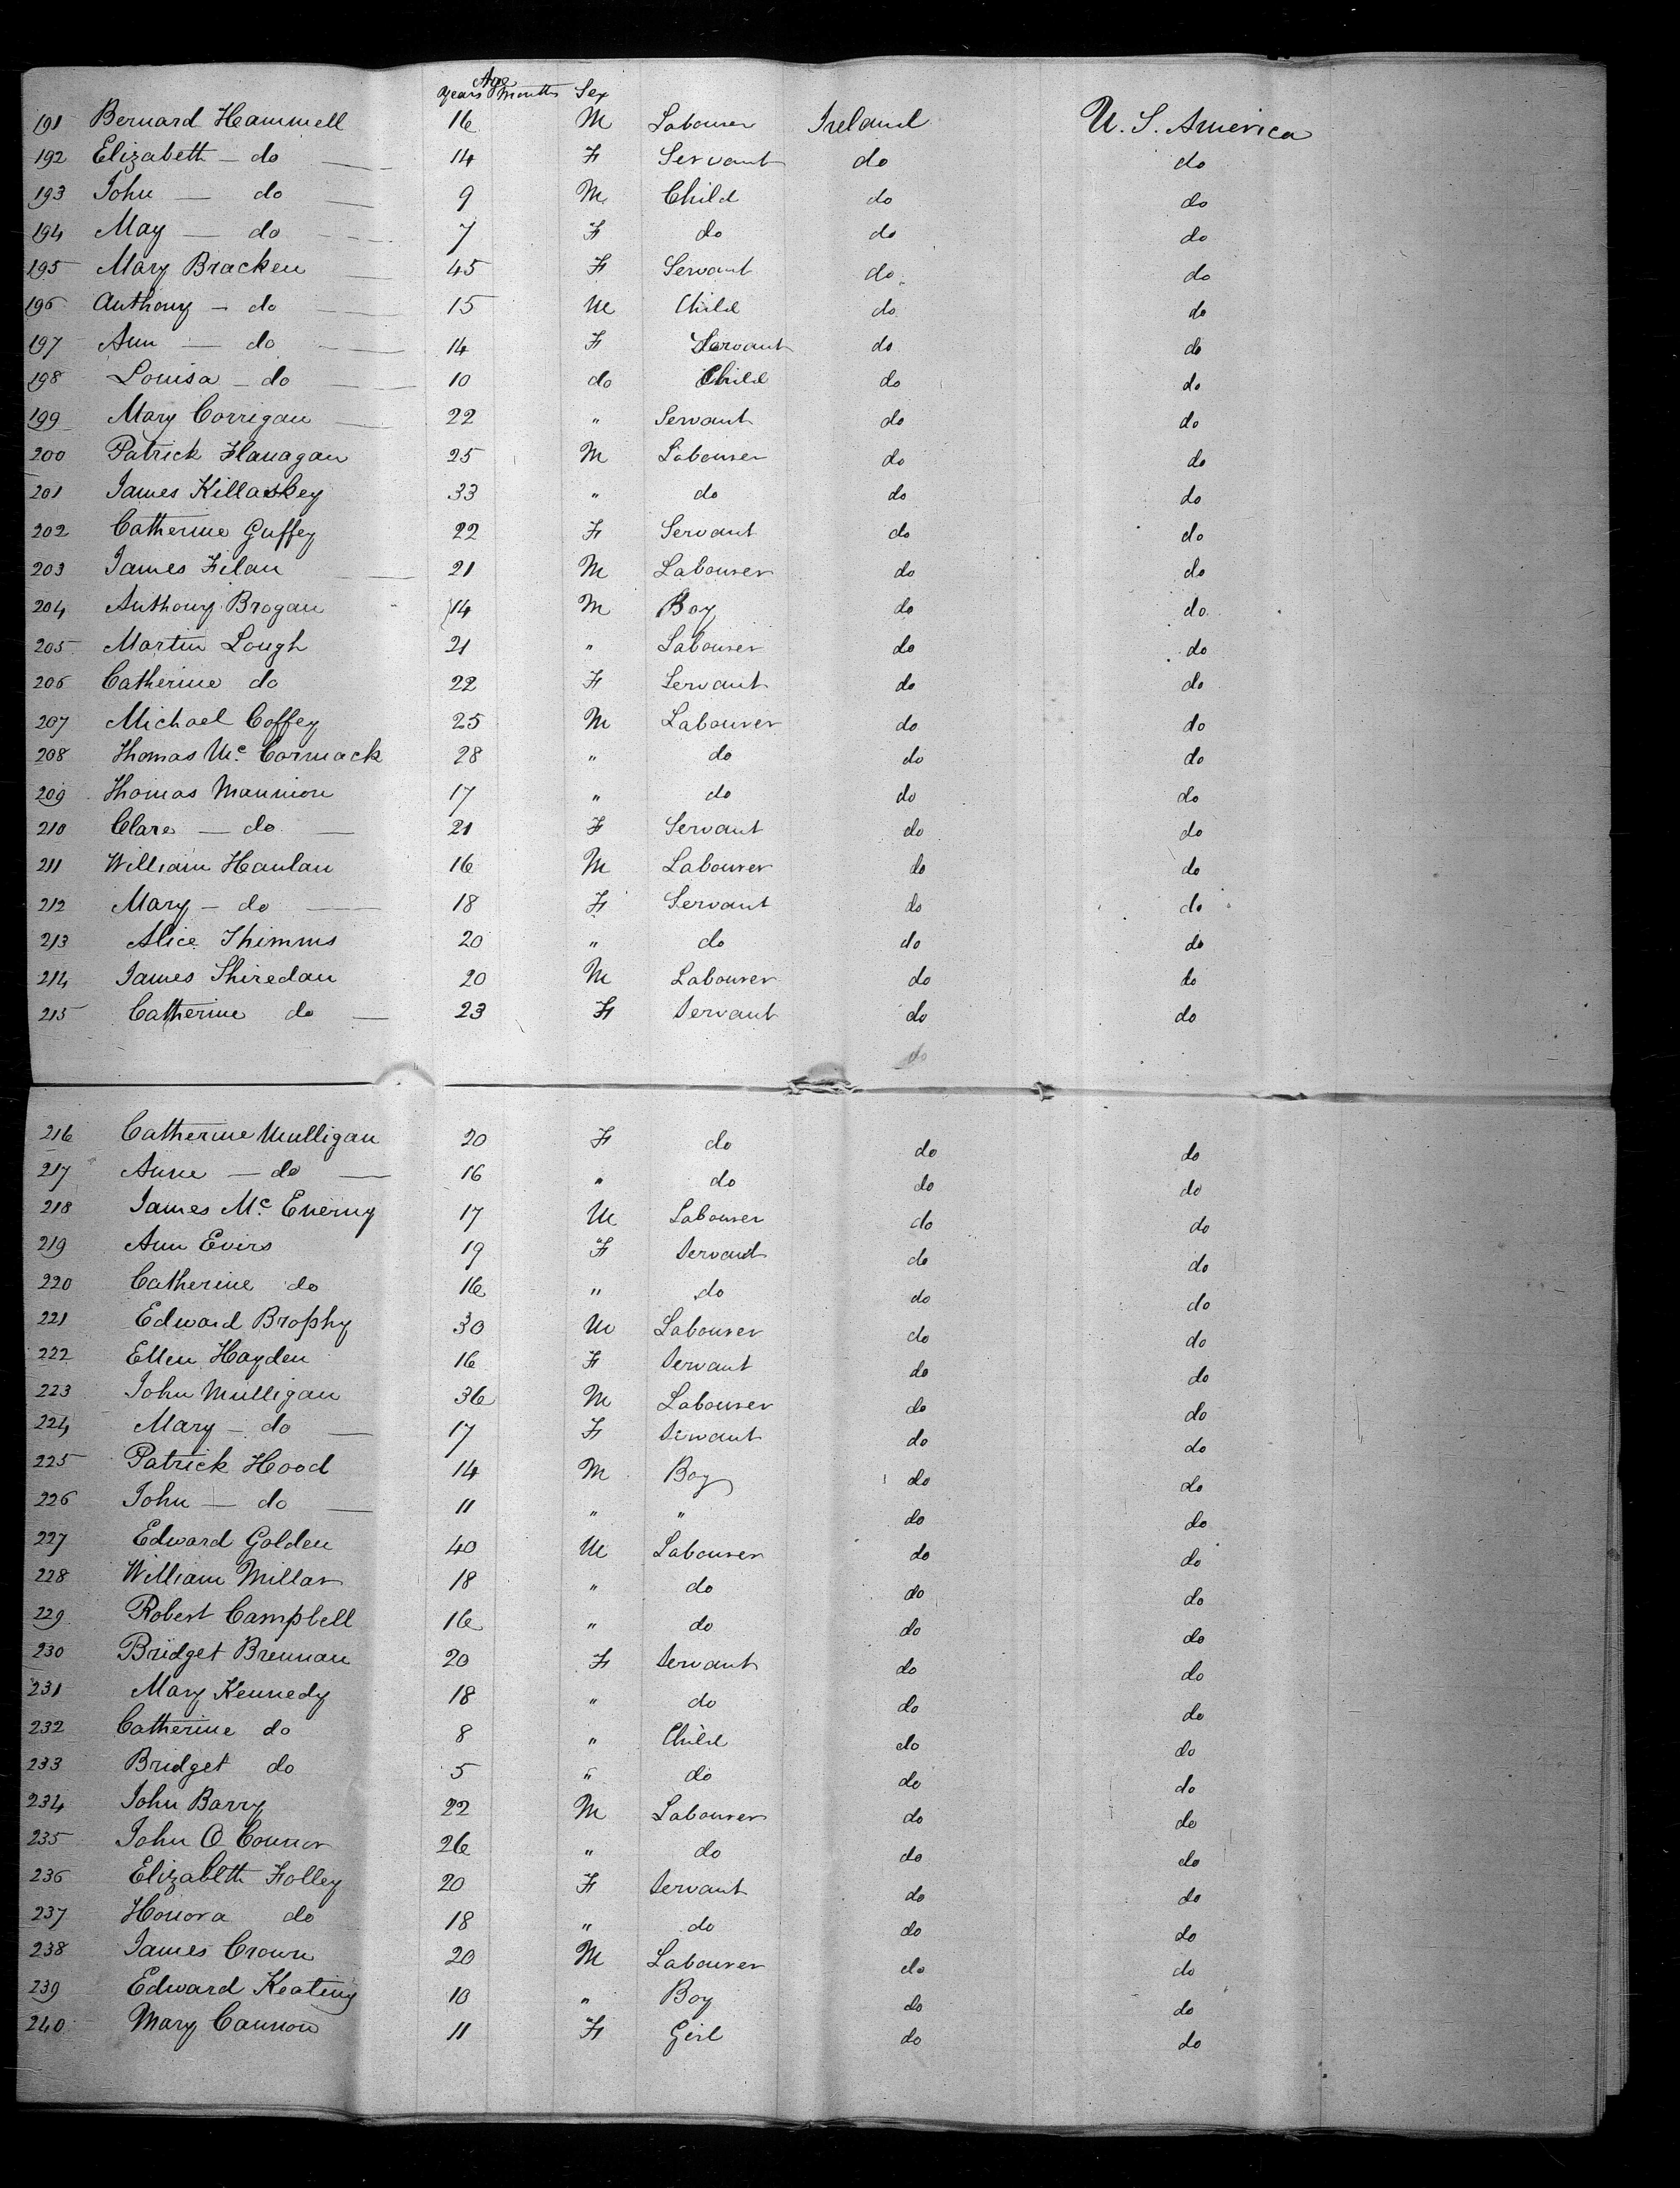 Age
Years Months Sex
191 Bernard Hammell 16 M Labourer Ireland U. S. America
192 Elizabeth — do — 14 F Servant do do
193 John — do — 9 M Child do do
194 May — do — 7 F do do do
195 Mary Bracken — 45 F Servant do do
196 Anthony — do — 15 M Child do do
197 Ann — do — 14 F Servant do do
198 Louisa — do — 10 do Child do do
199 Mary Corrigan — 22 " Servant do do
200 Patrick Flanagan 25 M Labourer do do
201 James Killaskey 33 " do do do
202 Catherine Guffey 22 F Servant do do
203 James Filan — 21 M Labourer do do
204 Anthony Brogan 14 M Boy do do
205 Martin Lough 21 " Labourer do do
206 Catherine do 22 F Servant do do
207 Michael Coffey 25 M Labourer do do
208 Thomas Mc. Cormack 28 " do do do
209 Thomas Mannion 17 " do do do
210 Clare — do — 21 F Servant do do
211 William Hanlan 16 M Labourer do do
212 Mary — do — 18 F Servant do do
213 Alice Thimms 20 " do do do
214 James Shiredan 20 M Labourer do do
215 Catherine do — 23 F Servant do do
do
216 Catherine Mulligan 20 F do do do
217 Anne — do — 16 " do do do
218 James Mc. Enerny 17 M Labourer do do
219 Ann Evirs 19 F Servant do do
220 Catherine do 16 " do do do
221 Edward Brophy 30 M Labourer do do
222 Ellen Hayden 16 F Servant do do
223 John Mulligan 36 M Labourer do do
224 Mary — do — 17 F Servant do do
225 Patrick Hood 14 M Boy do do
226 John — do — 11 " " do do
227 Edward Golden 40 M Labourer do do
228 William Millar 18 " do do do
229 Robert Campbell 16 " do do do
230 Bridget Brennan 20 F Servant do do
231 Mary Kennedy 18 " do do do
232 Catherine do 8 " Child do do
233 Bridget do 5 " do do do
234 John Barry 22 M Labourer do do
235 John O Connor 26 " do do do
236 Elizabeth Folley 20 F Servant do do
237 Honora do 18 " do do do
238 James Crown 20 M Labourer do do
239 Edward Keating 10 " Boy do do
240 Mary Cannon 11 F Girl do do